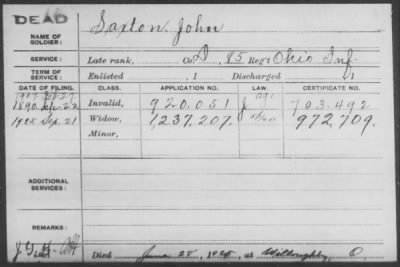 DEAD
NAME OF SOLDIER: Saxton John
SERVICE: Late rank, Co. D, 85 Reg't Ohio Inf.
TERM OF SERVICE: Enlisted , 1 Discharged , 1
DATE OF FILING. CLASS. APPLICATION NO. LAW. CERTIFICATE NO.
1907
1890 22 Invalid, 920.051 J 703.492
1925 Sep. 21 Widow, 1,237,207. 972,709.
Minor,
ADDITIONAL SERVICES:
REMARKS:
Died June 28, 1925, at Willoughby, O.